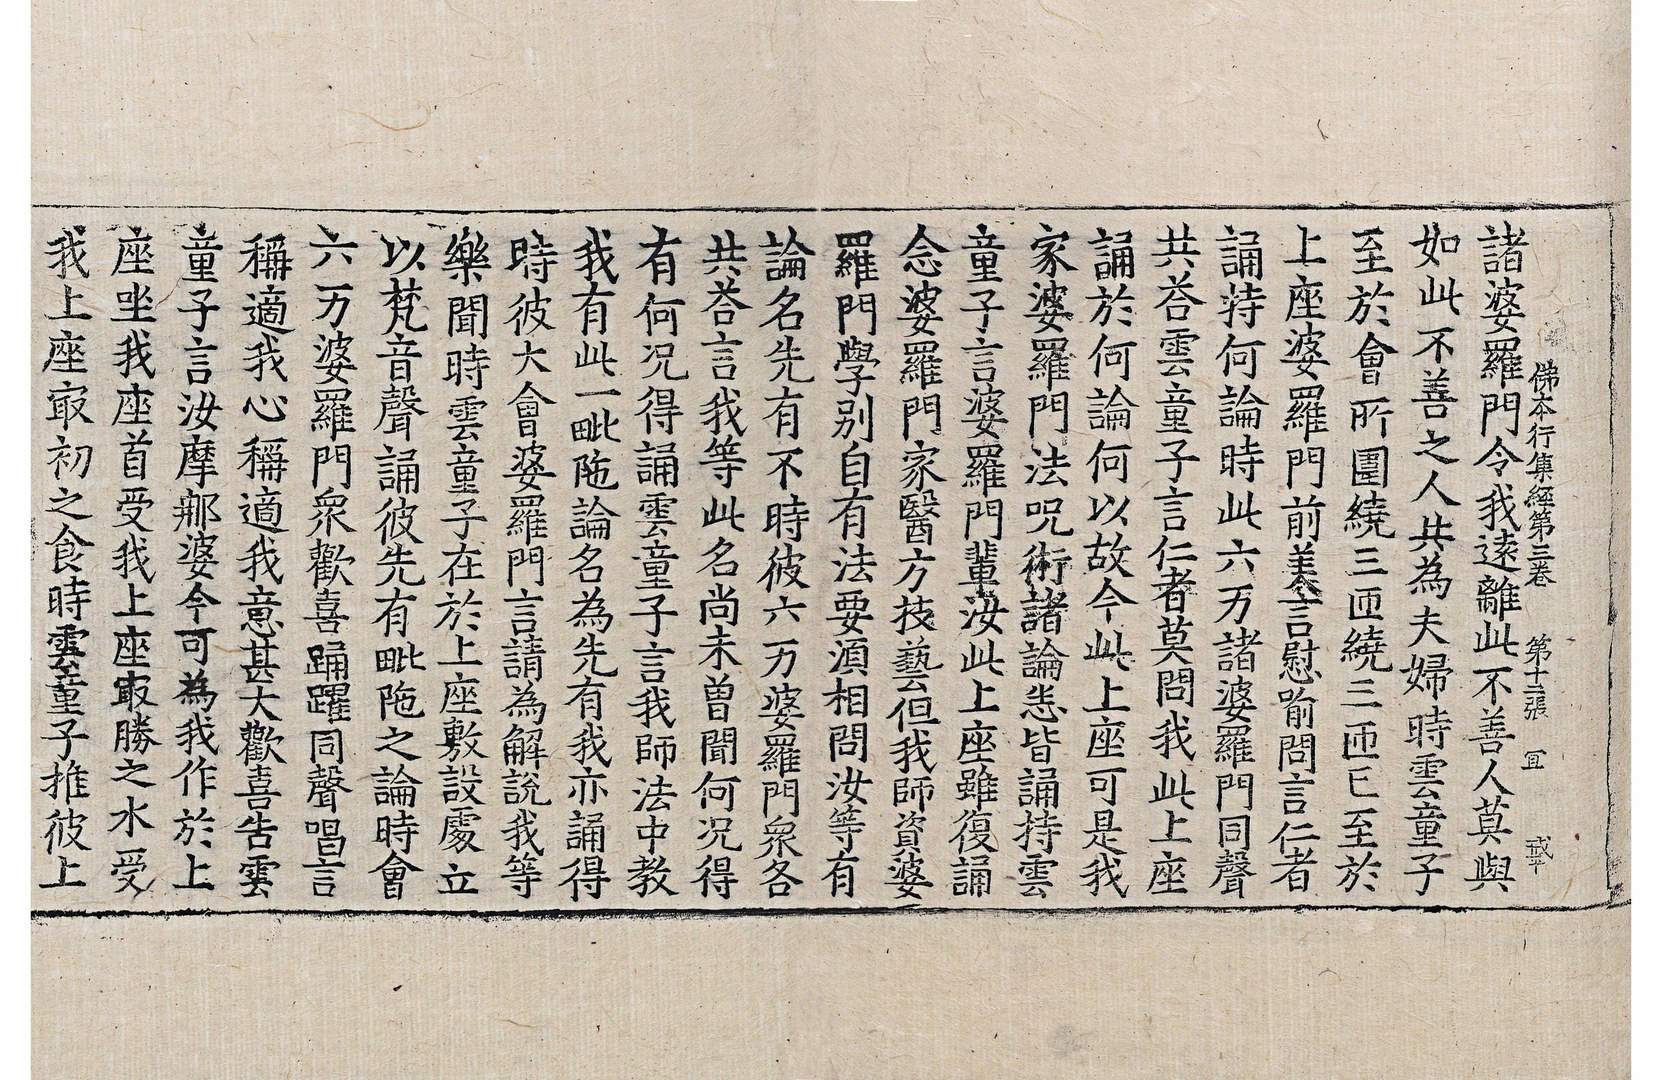 佛本行集經第三卷 第十二張 宜
諸婆羅門令我遠離此不善人莫與
如此不善之人共為夫婦時雲童子
至於會所圍繞三匝繞三匝已至於
上座婆羅門前美言慰喻問言仁者
誦持何論時此六万諸婆羅門同聲
共荅雲童子言仁者莫問我此上座
誦於何論何以故今此上座可是我
家婆羅門法呪術諸論悉皆誦持雲
童子言婆羅門輩汝此上座雖復誦
念婆羅門家醫方技藝但我師資婆
羅門學別自有法要湏相問汝等有
論名先有不時彼六万婆羅門眾各
共荅言我等此名尚未曾聞何况得
有何况得誦雲童子言我師法中教
我有此一毗陁論名為先有我亦誦得
時彼大會婆羅門言請為解說我等
樂聞時雲童子在於上座敷設處立
以梵音聲誦彼先有毗陁之論時會
六万婆羅門眾歡喜踊躍同聲唱言
稱適我心稱適我意甚大歡喜告雲
童子言汝摩那婆今可為我作於上
座坐我座首受我上座冣勝之水受
我上座冣初之食時雲童子推彼上